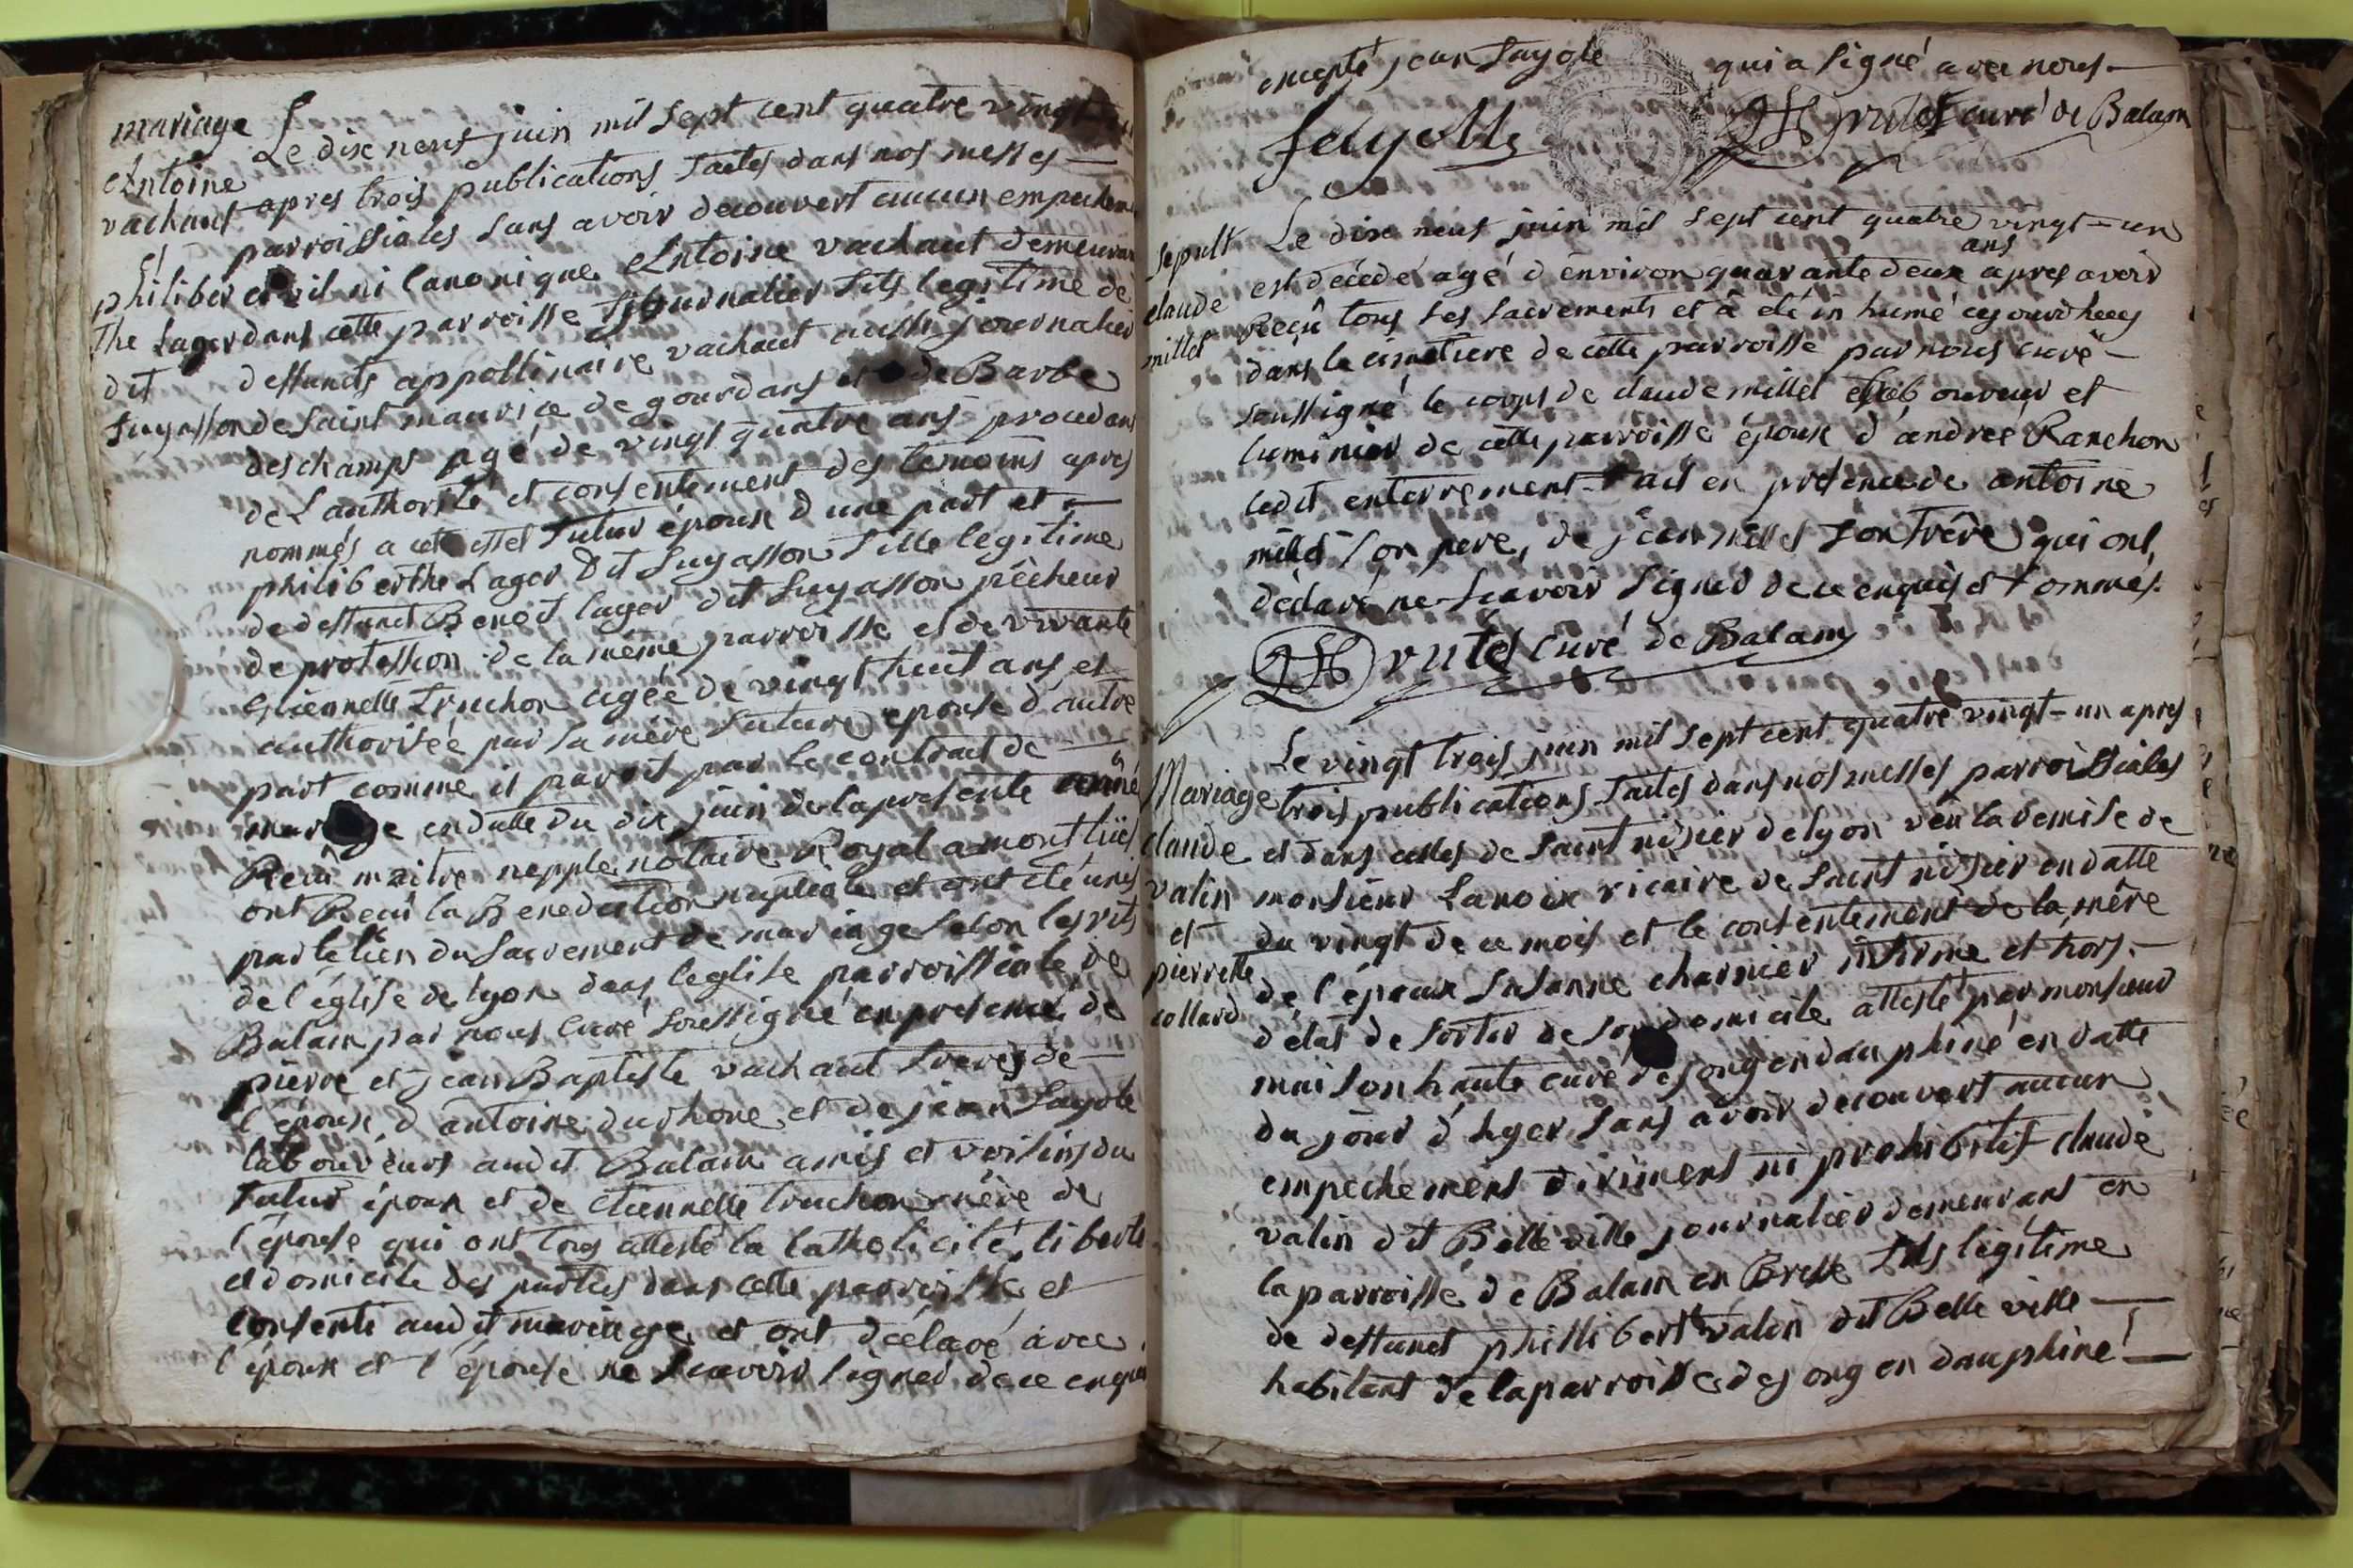 mariage
Antoine
vachaut
et
philiber
the Lager
dit
Luyasson
Le dix neuf juin mil sept cent quatre vingt
apres trois publications faites dans nos messes
parroissiales sans avoir decouvert aucun empechem
civil ni canonique Antoine vachaut demeurant
dans cette parroisse journalier fils legitime de
deffunts appollinaire vachaut aussi journalier
de saint maurice de gourdans et de Barbe
deschamps agé de vingt quatre ans procedant
de L'authorité et consentement des temoins apres
nommés a cet effet futur époux d'une part et
philiberthe Lager Dit Luyasson fille legitime
de deffunct Benoit lager dit Luyasson pêcheur
de profession de la même parroisse et de vivante
Etiennette truchon agée de vingt huit ans et
authorisée par sa mère future epouse d'autre
part comme il paroit par le contract de
mariage en datte du dix juin de la presente année
Recû maitre nepple notaire Royal a montlüel
ont Recû la Benediction nuptiale et ont été unis
par le lien du sacrement de mariage selon les rits
de l'église de lyon dans l'eglise parroissiale de
Balan par nous curé soussigné en presence de
pierre et jean Baptiste vachaut freres de
l'époux, d'antoine durhone et de jean Layole
laboureurs audit Balan amis et voisins du
futur époux et de Etiennette truchon mère de
l'épouse qui ont tous attesté la catholicité, liberté
et domicile des parties dans cette parroisse et
consenti audit mariage et ont déclaré avec
l'époux et l'épouse ne scavoir signer de ce enquis
excepté jean Layole qui a signé avec nous
Layolle
curé de Balan
sepult
claude
millet
Le dix neuf juin mil sept cent quatre vingt-un
est decedé agé d'environ quarante deux ans apres avoir
Recû tous ses sacrements et a été inhumé cejourdhuy
dans le cimetiere de cette parroisse par nous curé
soussigné le corps de claude millet laboureur et
luminier de cette parroisse époux d'andrée Ranchon
ledit enterrement fait en présence de antoine
millet son pere, de jean millet son frère qui ont
déclaré ne scavoir signer de ce enquis et sommés.
curé de Balan
Mariage
claude
valin
et
pierrette
collard
Le vingt trois juin mil sept cent quatre vingt-un apres
trois publications faites dans nos messes parroissiales
et dans celles de saint nisier de lyon vû la remise de
monsieur Lanoix vicaire de saint nisier en datte
du vingt de ce mois et le consentement de la mère
de l'époux Susanne charnier infirme et hors
d'état de sortir de son domicile attesté par monsieur
maisonhaute curé de jong en dauphiné en datte
du jour d'hyer sans avoir decouvert aucun
empechement diriment ni prohibitif claude
valin dit Belleville journalier demeurant en
la parroisse de Balan en Bresse fils légitime
de deffunct phillibert valin dit Belle ville
habitant de la parroisse des ong en dauphiné